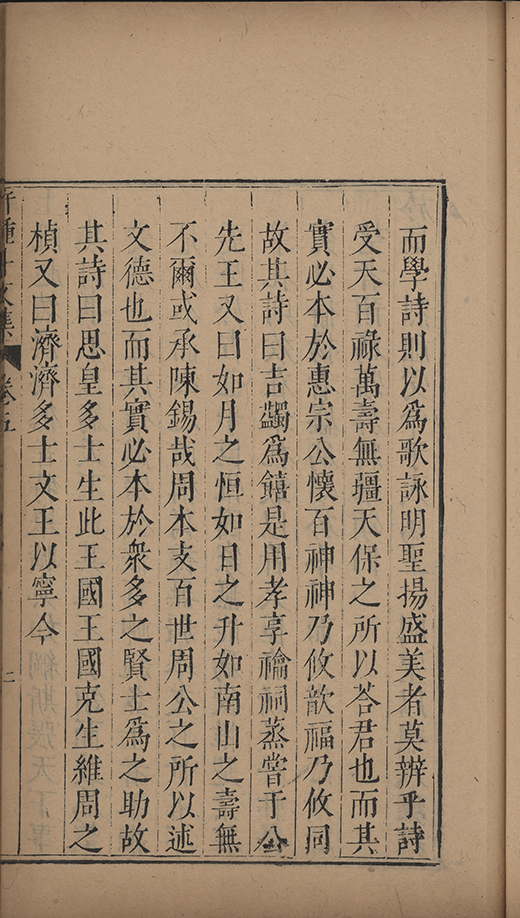 而學詩則以爲歌詠明聖揚盛美者莫辨乎詩
受天百祿萬壽無疆天保之所以荅君也而其
實必本於惠宗公懷百神神乃攸歆福乃攸同
故其詩曰吉蠲爲饎是用孝享禴祠蒸嘗于公
先王又曰如月之恒如日之升如南山之壽無
不爾或承陳錫哉周本支百世周公之所以述
文德也而其實必本於衆多之賢士爲之助故
其詩曰思皇多士生此王國王國克生維周之
楨又曰濟濟多士文王以寧今
文集
卷五
二